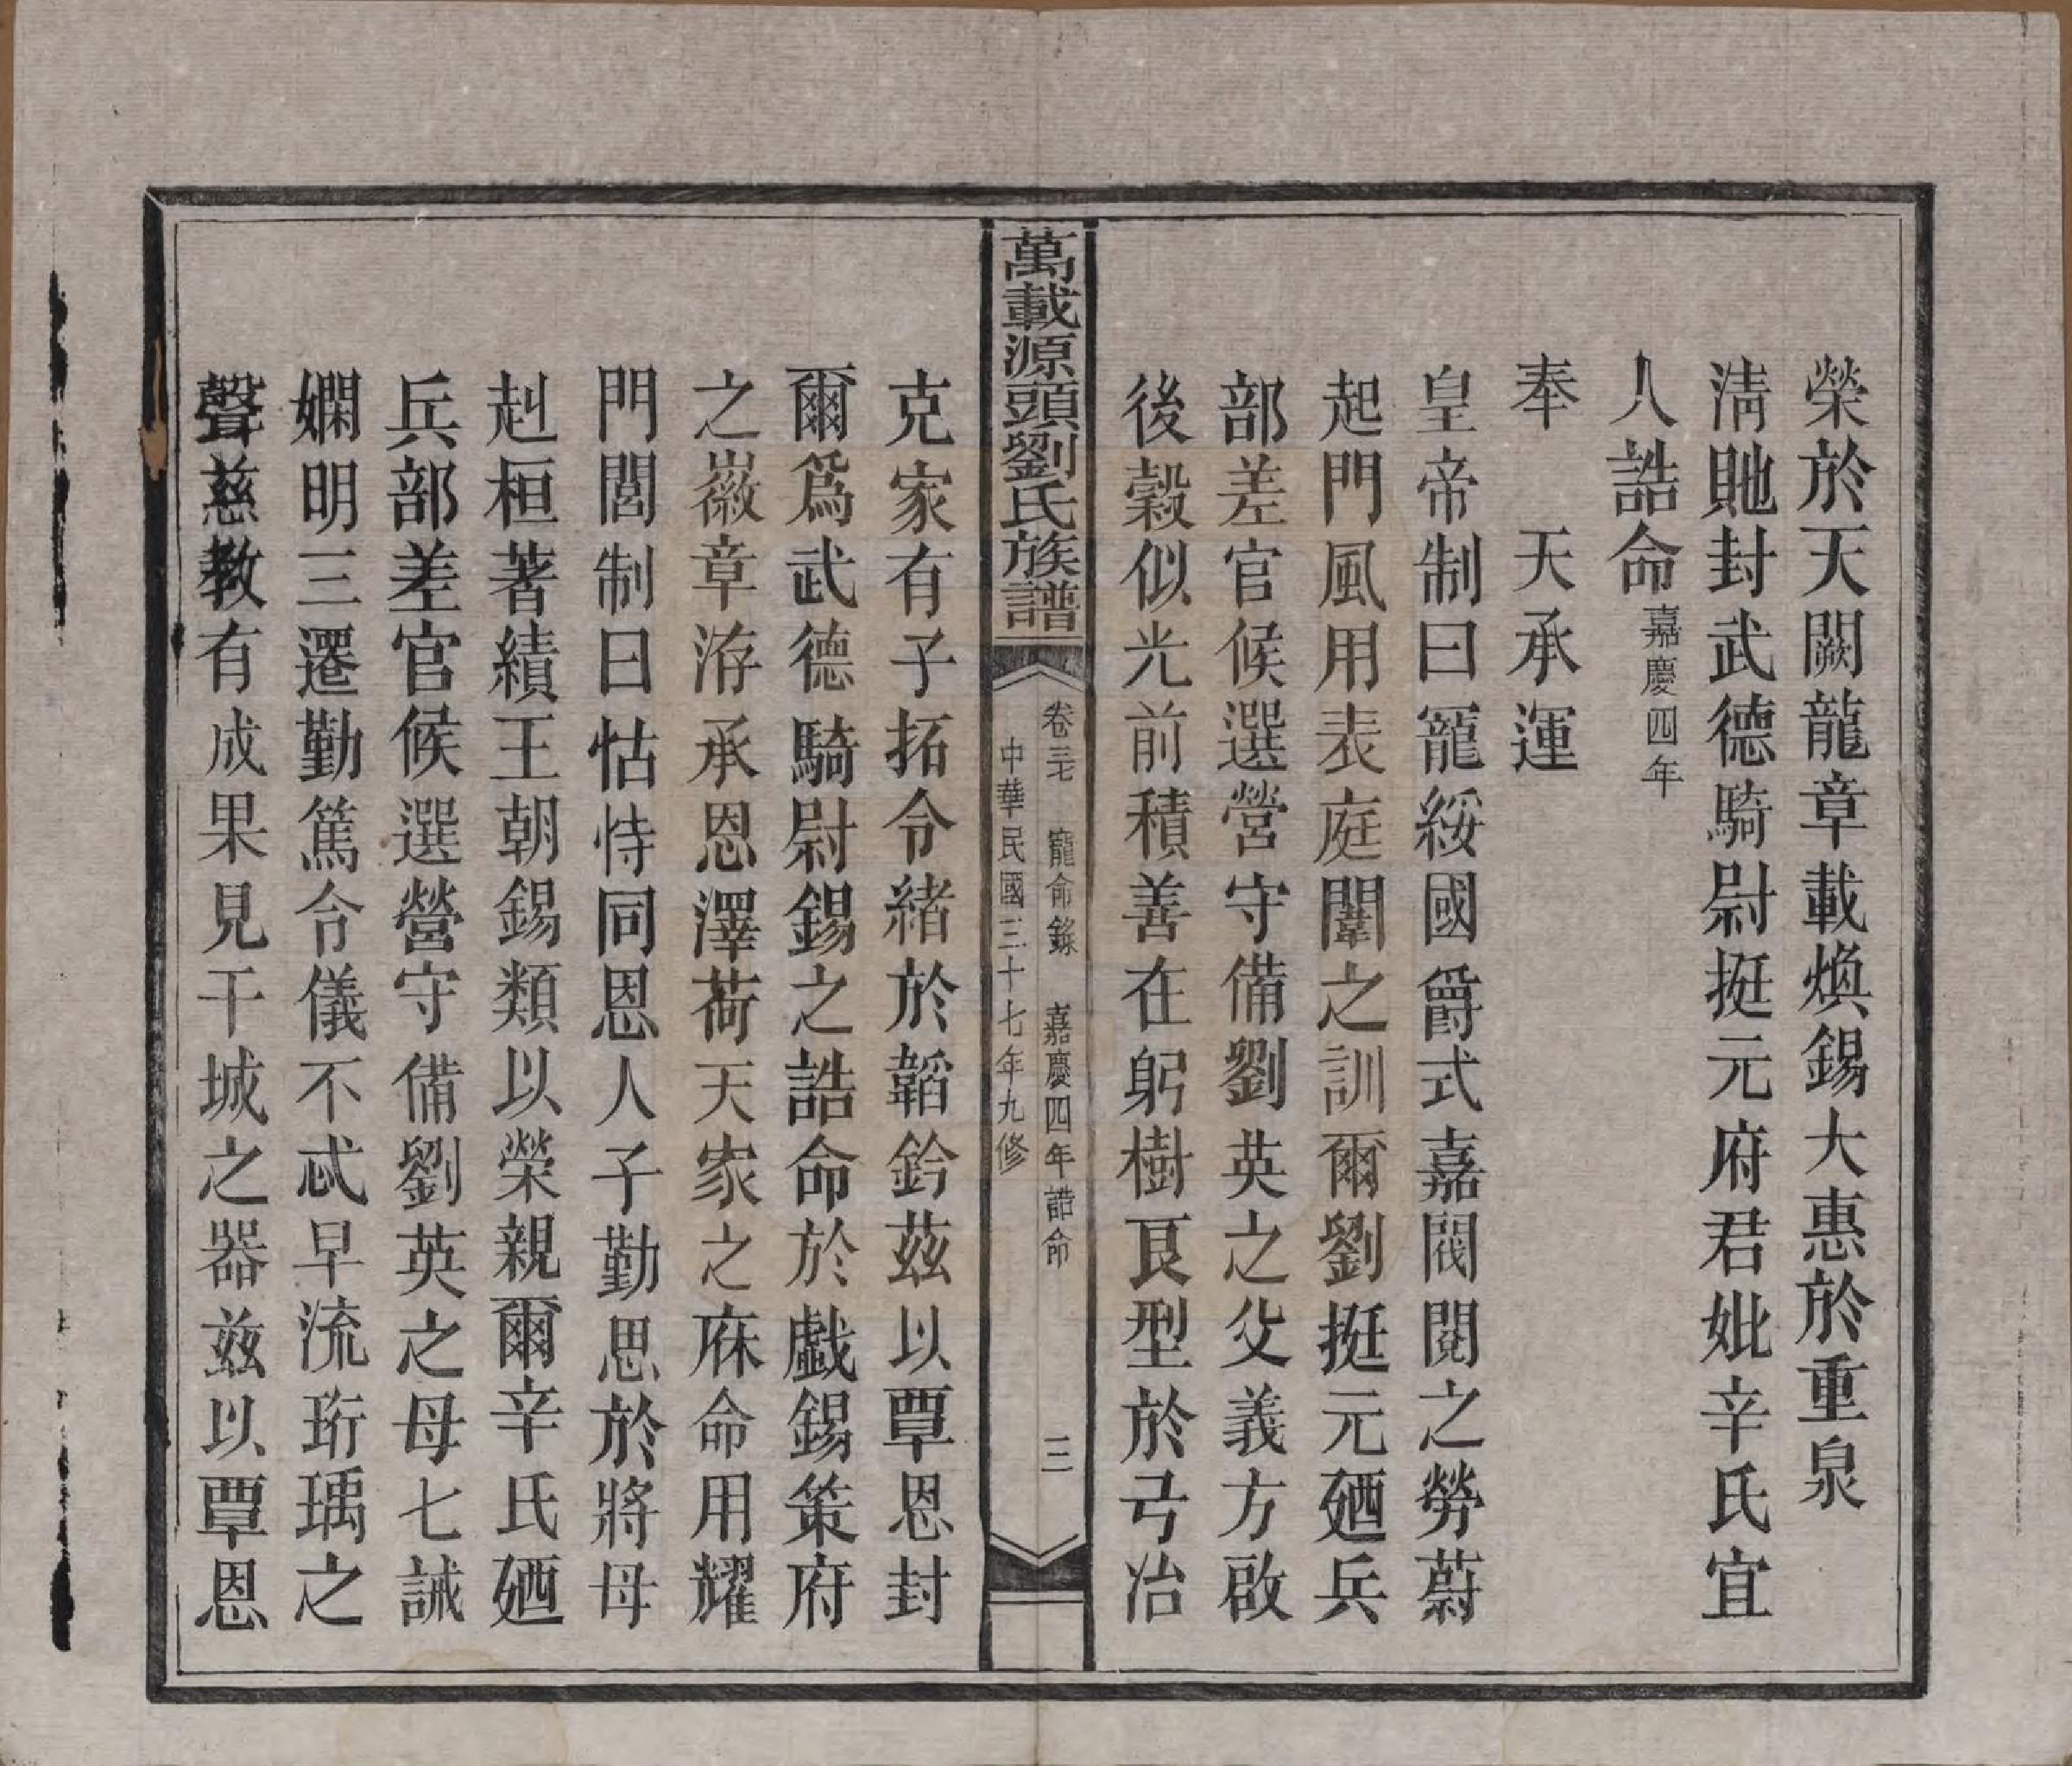 榮於天闕龍章載煥錫大惠於重泉
淸貤封武德騎尉挺元府君妣辛氏宜
人誥命嘉慶四年
奉 天承運
皇帝制曰寵綏國爵式嘉閥閱之勞蔚
起門風用表庭闈之訓爾劉挺元廼兵
部差官候選營守備劉英之父義方啟
後榖似光前積善在躬樹艮型於弓冶
萬載源頭劉氏族譜
卷三七 寵命錄 嘉慶四年誥命 三
中華民國三十七年九修
克家有子拓令緒於韜鈐茲以覃恩封
爾爲武德騎尉錫之誥命於戱錫策府
之徽章洊承恩澤荷天家之庥命用耀
門閭制曰怙恃同恩人子勤思於將母
赳桓著績王朝錫類以榮親爾辛氏廼
兵部差官候選營守備劉英之母七誡
嫻明三遷勤篤令儀不忒早流珩瑀之
聲慈敎有成果見干城之器茲以覃恩